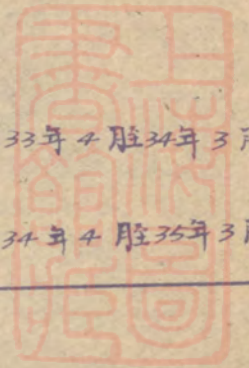 33年4月至34年3月
34年4月至35年3月